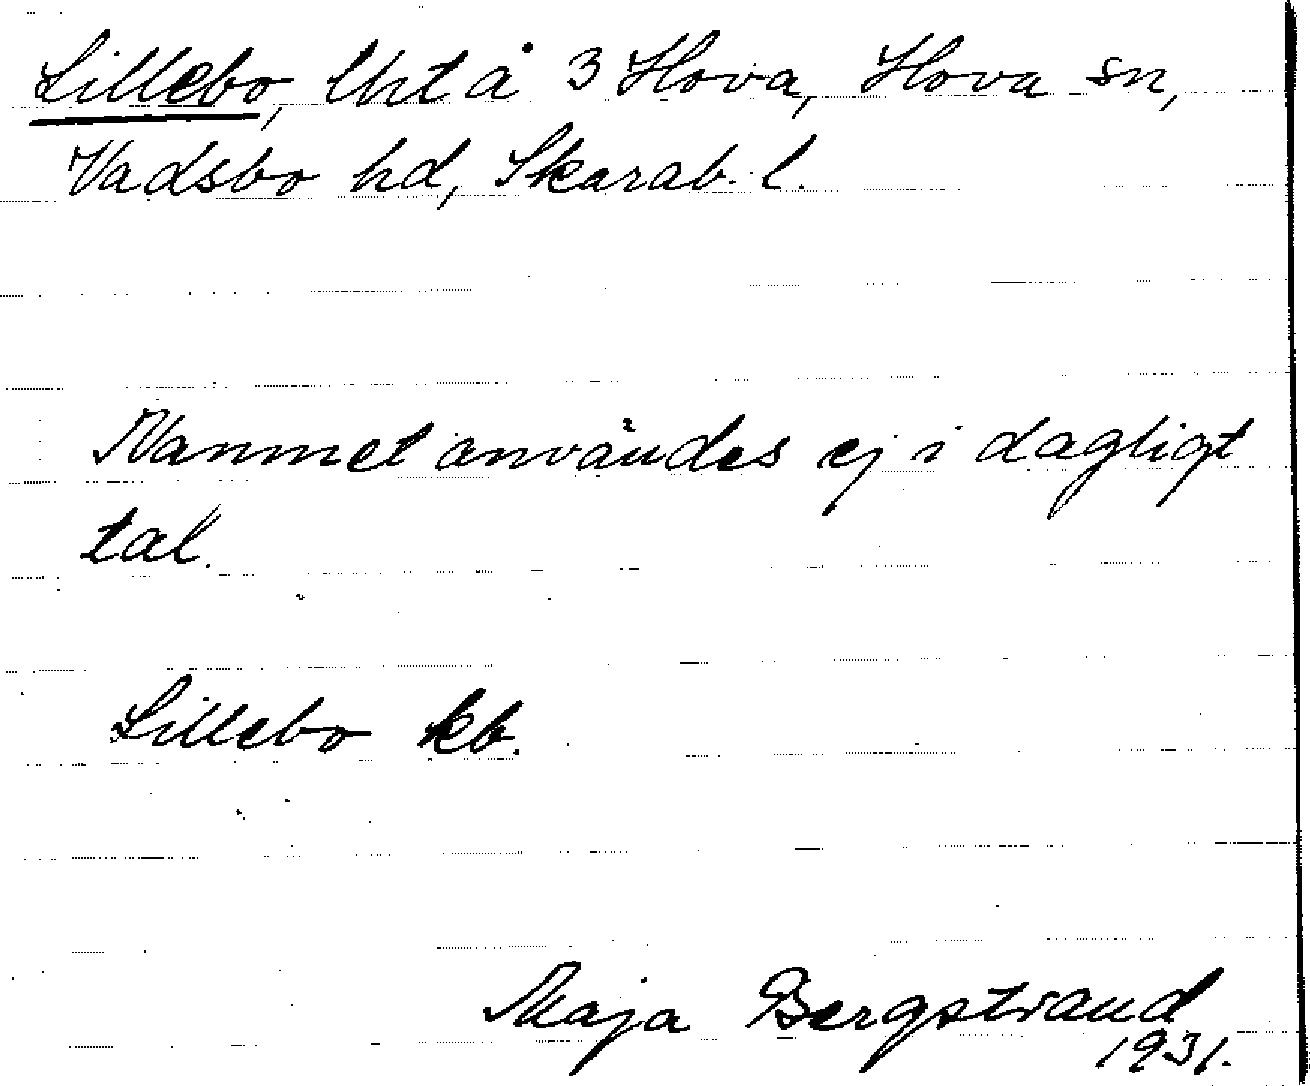 Lillebo, lht å 3 Hova, Hova sn,
Vadsbo hd, Skarab. l.
Namnet användes ej i dagligt
tal.
Lillebo kb.
Maja Bergstrand
1931.